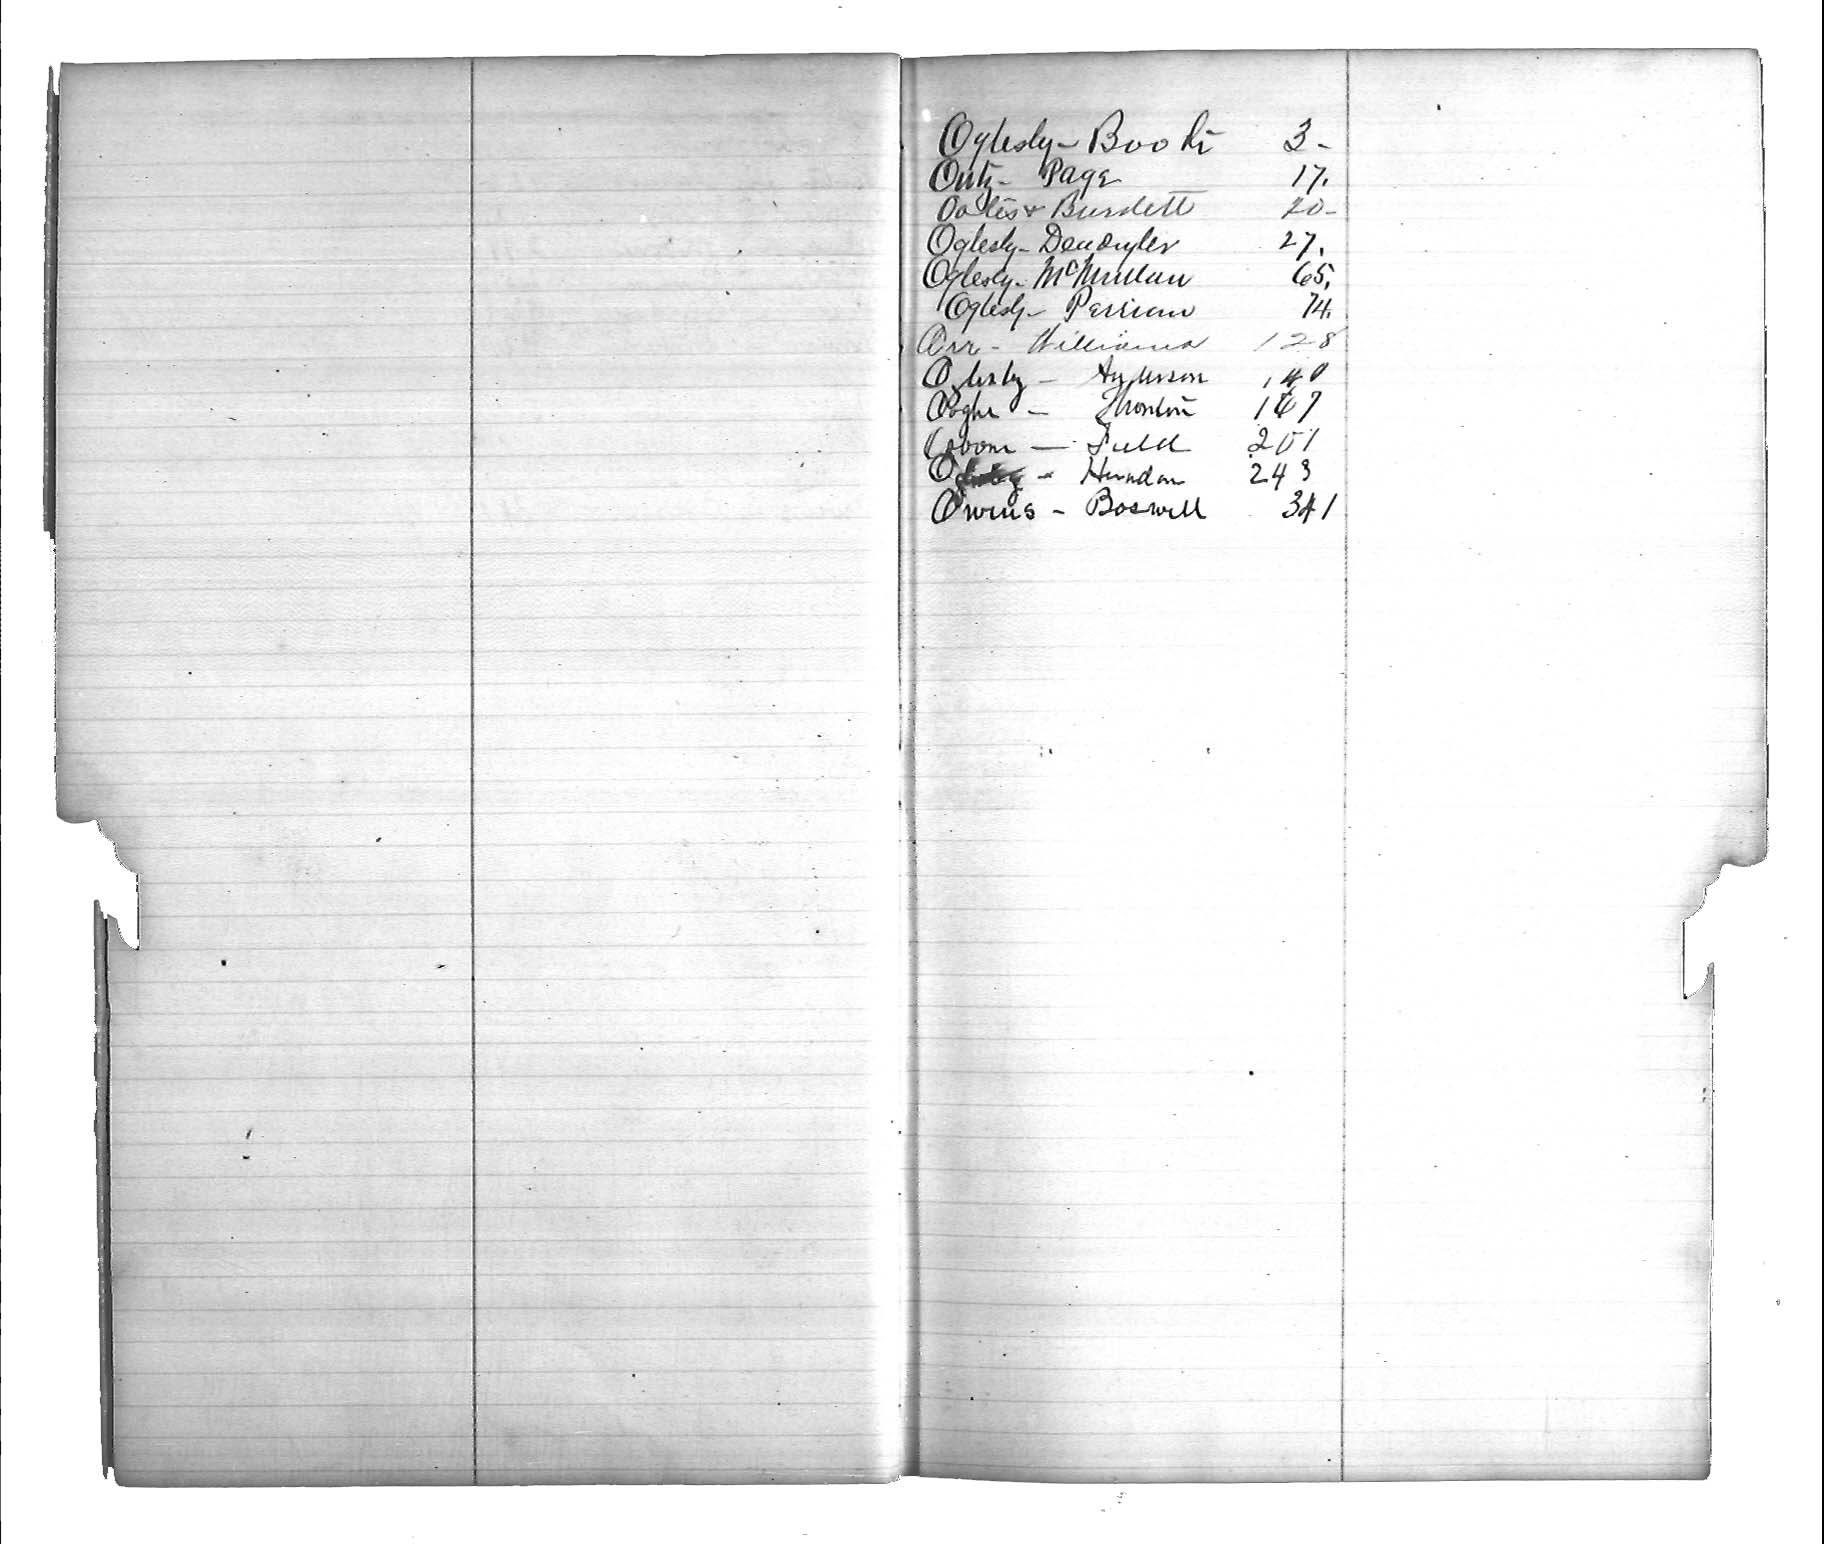 Oglesby - Booth 3 -
Outz - Page 17.
Oates & Burdett 20 -
Oglesby - Denduyler 27.
Oglesby - McMullan 65.
Oglesby - Perriman 74.
Orr - Williams 128
Oglesby - Anderson 140
- Thornton 167
- Field 201
- Herndon 243
Owens - Boswell 341